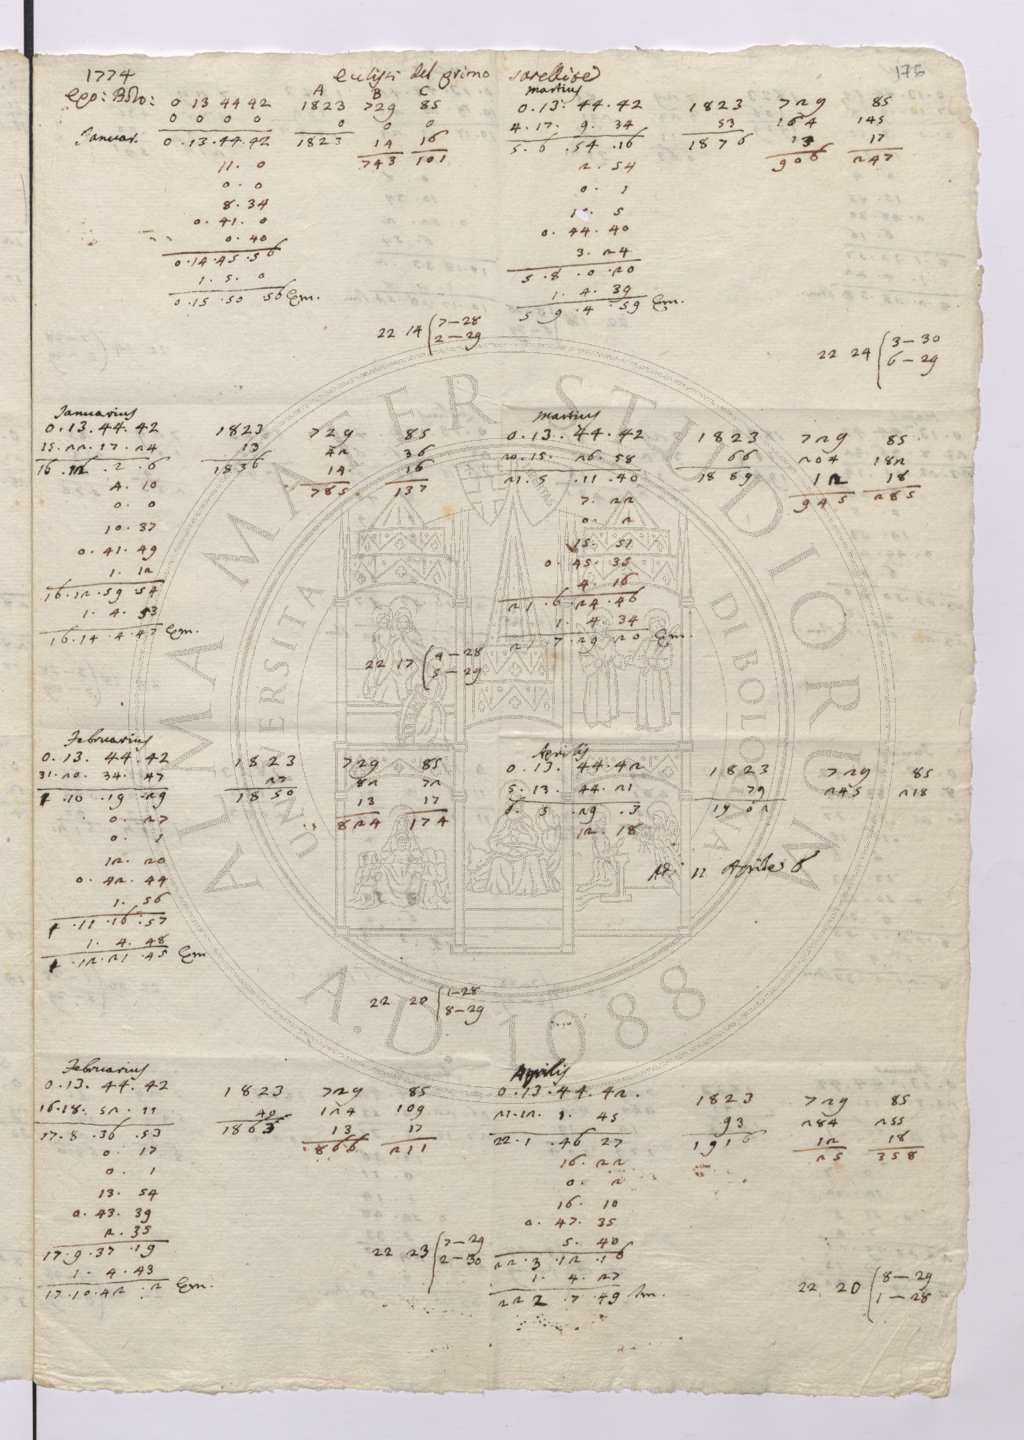 175
1774
eclissi del primo satellite
Epo: Bolo: 0 13 44 42 A 1823 B 729 C 85
0 0 0 0 0 0 0
Januar. 0.13.44.42 1823 14 16
743 101
11. 0
0. 0
8.34
0. 41. 0
0. 40
0.14.45.56
1. 5. 0
0.15.50.56 Em.
22 14 7-28
2-29
Januarius
0.13.44.42 1823 729 85
15.22.17.24 13 42 36
16.12.2.6 1836 14 16
785 137
4. 10
0. 0
10. 37
0. 41. 49
1. 12
16.12.59.54
1. 4. 53
16.14.4.47 Em.
22 17 4-28
5-29
Februarius
0.13.44.42 1823 729 85
31.20.34.47 27 82 72
1.10.19.29 1850 13 17
824 174
0. 27
0. 1
12. 20
0. 42. 44
1. 56
1.11.16.57
1. 4. 48
1.12.21.45 Em
22 20 1-28
8-29
Februarius
0.13.44.42 1823 729 85
16.18.52.11 40 124 109
17.8.36.53 1863 13 17
866 211
0. 17
0. 1
13. 54
0. 43. 39
2. 35
17.9.37.19
1. 4. 43
17.10.42.2 Em.
22 23 7-29
2-30
Martius
0.13.44.42 1823 729 85
4.17.9.34 53 164 145
5.6.54.16 1876 13 17
906 247
2. 54
0. 1
10. 5
0. 44. 40
3. 24
5.8.0.20
1. 4. 39
5.9.4.59 Em.
22 24 3-30
6-29
Martius
0.13.44.42 1823 729 85
20.15.26.58 66 204 182
21.5.11.40 1889 12 18
945 285
7. 22
0. 2
15. 51
0. 45. 35
4. 16
21.6.24.46
1. 4 34
21.7.29.20 Em.
Aprilis
0.13.44.42 1823 729 85
5.13.44.21 79 245 218
6.3.29.3 1902
12. 18
Adi 11 Aprile
Aprilis
0.13.44.42. 1823 729 85
21.12.1.45 93 284 255
22.1.46 27 1916 12 18
25 358
16. 22
0. 2
16. 10
0. 47. 35
5. 40
22.3.12.16
1. 4. 27
22 2.7.49 Im.
22 20 8-29
1-28
ALMA MATER STUDIORUM
UNIVERSITA DI BOLOGNA
A.D. 1088